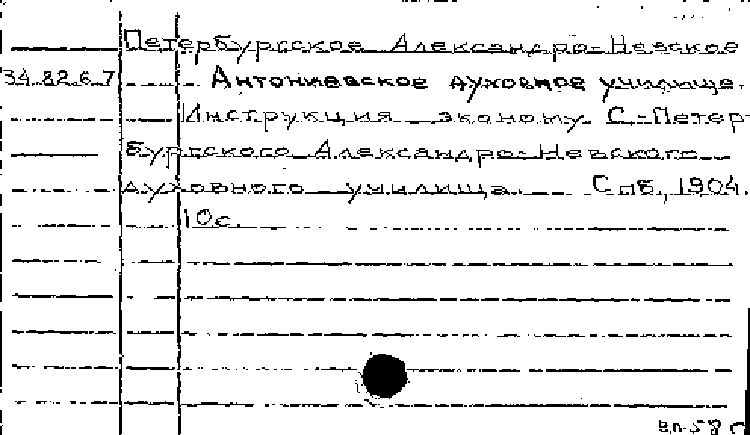 Петербургское Александро-Невское
34.82.6.7 Антониевское духовное училище.
Инструкция эконому С.-Петер-
бургского Александро-Невского
духовного училища. Спб., 1904.
10с.